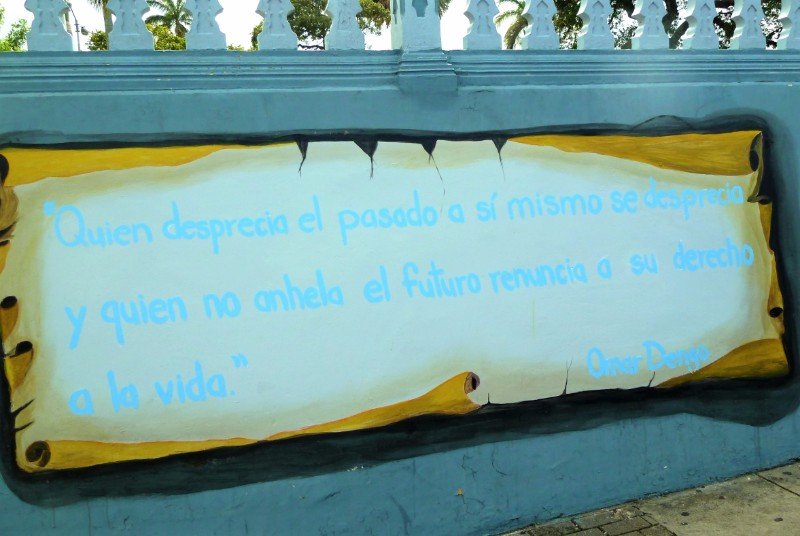 "Quien desprecia el pasado a sí mismo se desprecia
y quien no anhela el futuro renuncia a su derecho
a la vida."
Omar Dengo